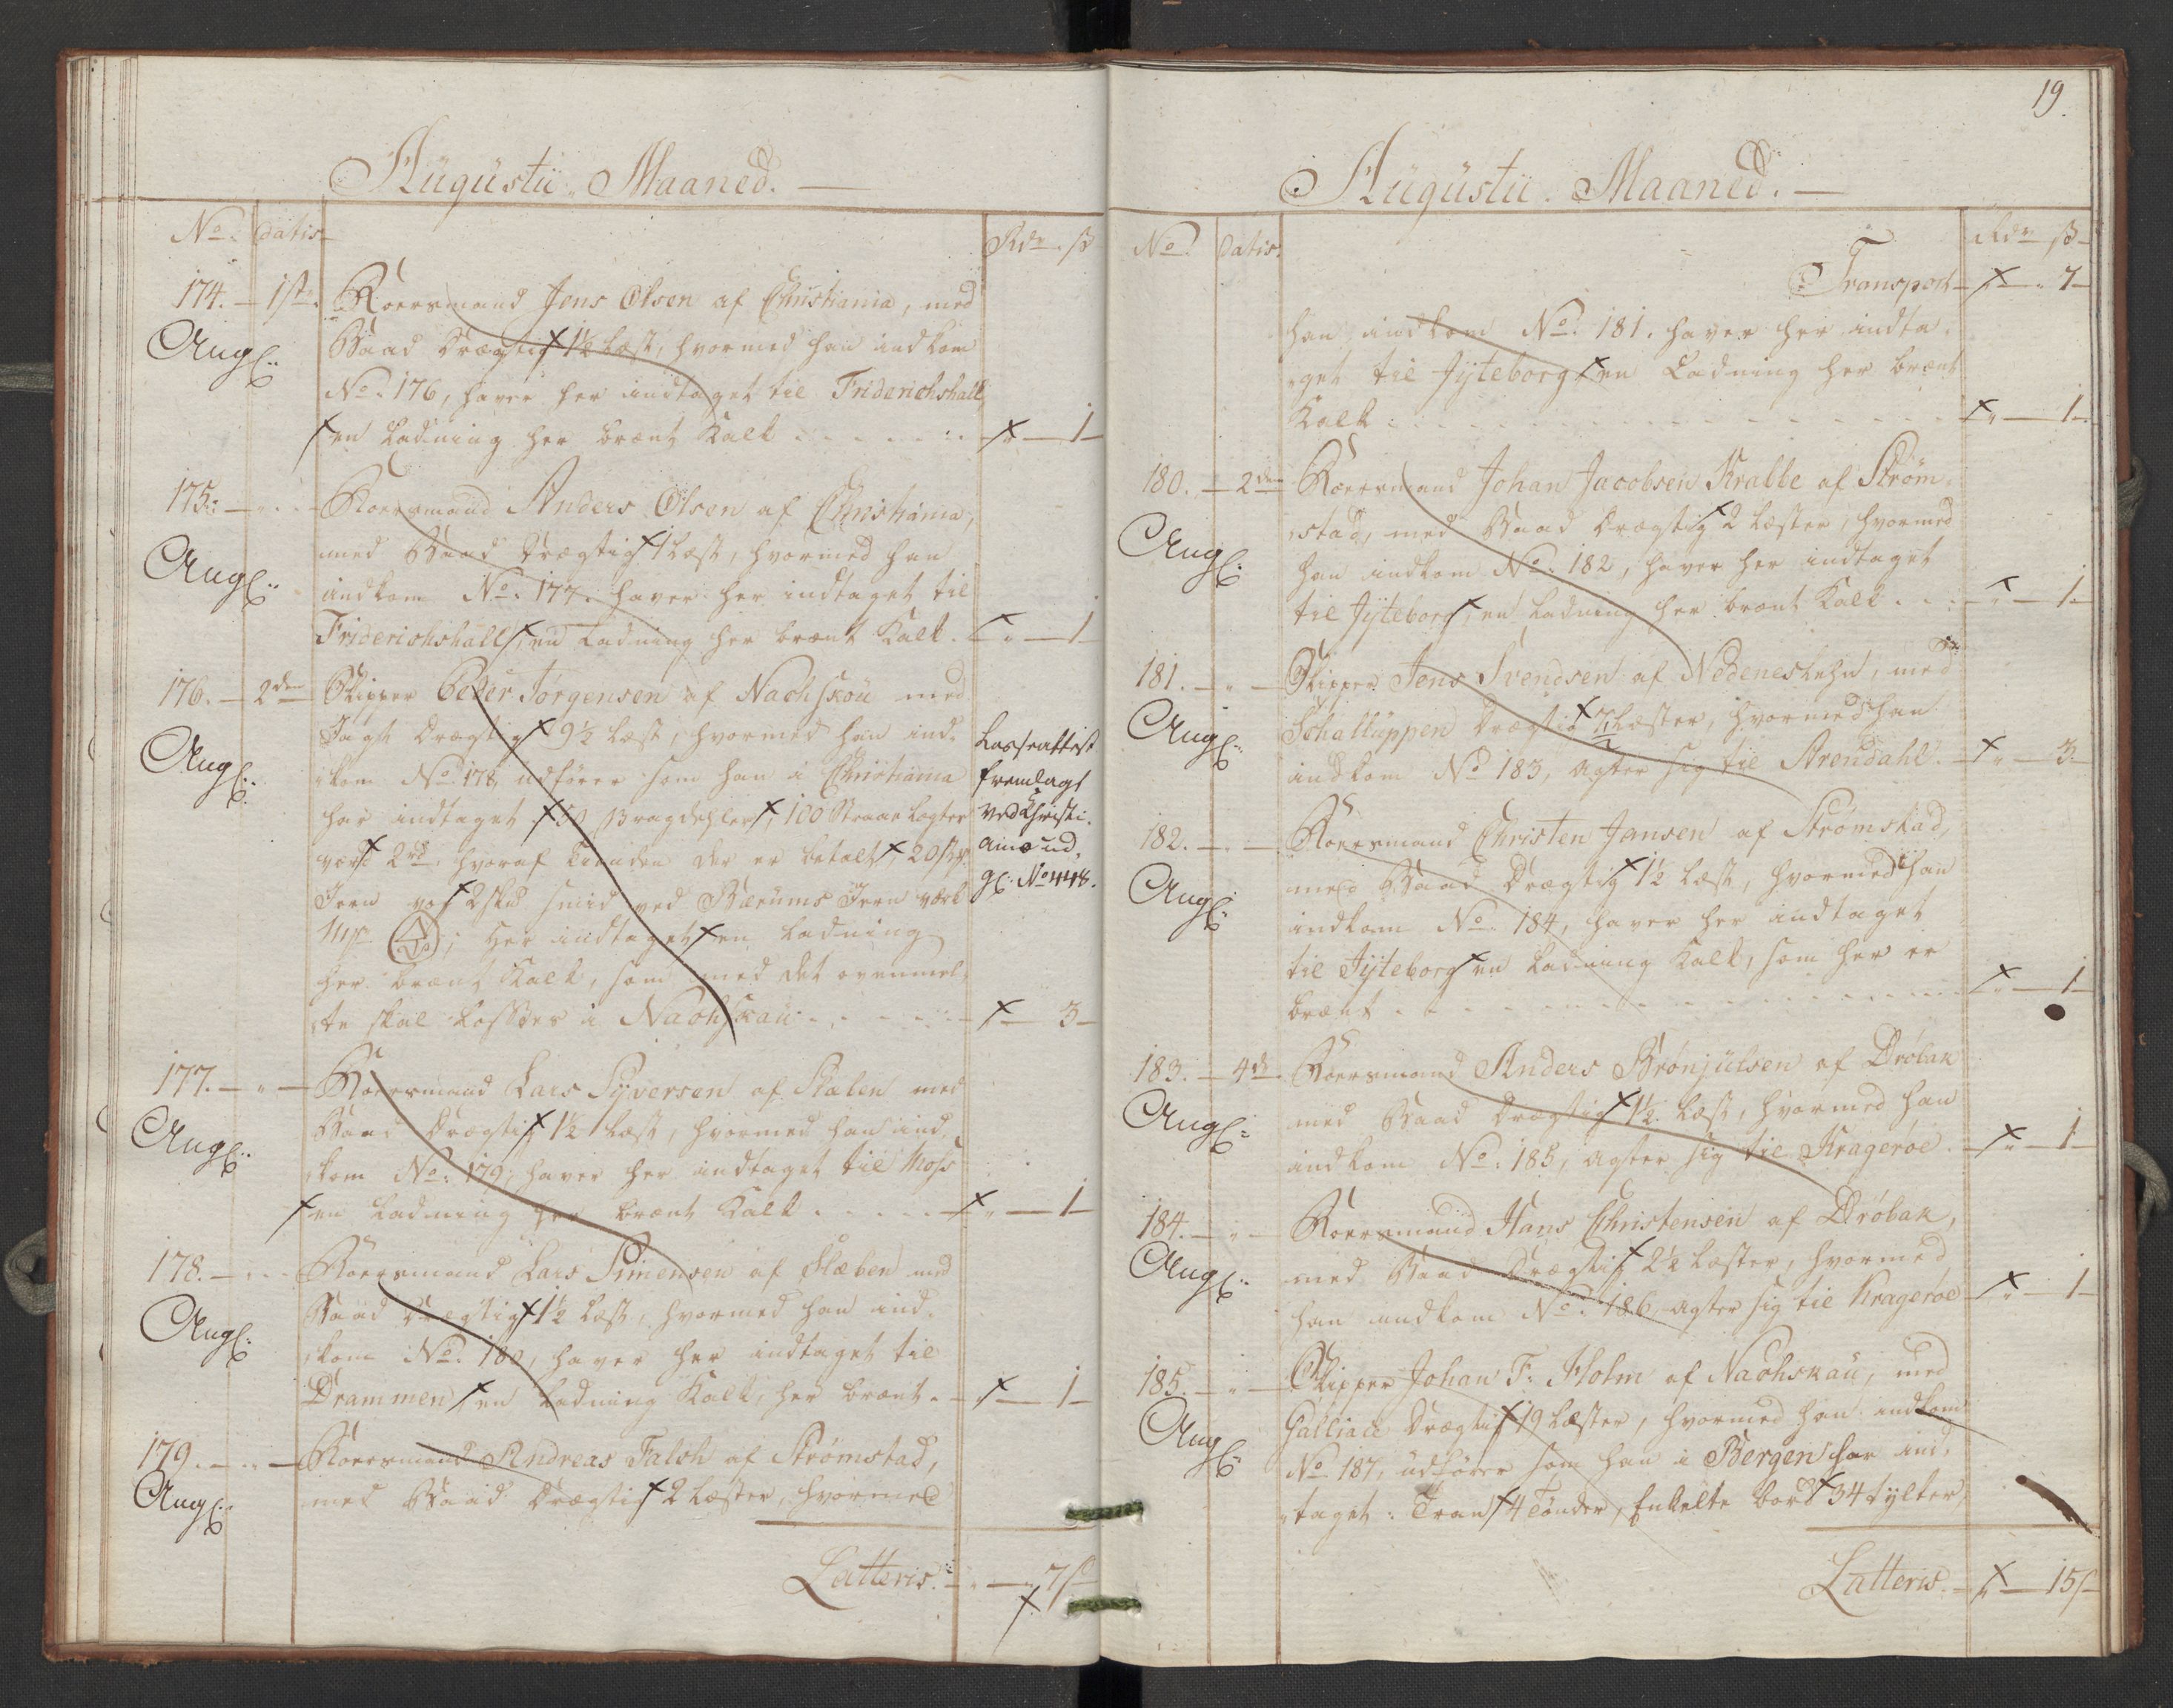 Augustii Maaned.
No. Datis Rdr. ß
174. 1ste Roersmand Jens Olsen af Christiania, med
Angl: Baad drægtig 1½ Læst, hvormed han indkom
No. 176, haver her indtaget til Friderichshall
en Ladning her brænt Kalk 1
175. Roersmand Anders Olsen af Christiania,
med Baad drægtig 1 Læst, hvormed han
Angl: indkom No. 177. haver her indtaget til
Friderichshall, en Ladning her brænt Kalk. 1
176. 2den Skipper Peder Jørgensen af Nachskou med
Jagt drægtig 9½ Læst, hvormed han ind-
Angl: kom No. 178, udfører som han i Christiania
har indtaget 50 Bragdehler, 100 Straae Lægter
værd 2 rd. hvoraf Tienden der er betalt, 20 
Jern 2 smid ved Bærums Jern værk
her indtaget en Ladning
her brænt Kalk, som med det ovenmel-
te skal losses i Nachskau 3
Losseattest
fremlagt
ved Christi-
ania ud.
gl: No 448.
177. Roersmand Lars Syversen af Stalen med
Baad drægtig 1½ Læst, hvormed han ind-
Angl: kom No. 179, haver her indtaget til Moss
en Ladning her brænt Kalk 1
178. Roersmand Lars Simensen af Slæben med
Baad drægtig 1½ Læst, hvormed han ind-
Angl: kom No. 180, haver her indtaget til
Drammen, en Ladning Kalk, her brænt. 1
179. Roersmand Andreas Falch af Strømstad,
Angl: med Baad drægtig 2 Læster, hvormed
Latteris. 7 ß
19.
Augustii Maaned.
No. Datis. Rdr ß
Transport 7
han indkom No. 181. haver her indta-
get til Jyteborg en Ladning her brænt
Kalk 1
180. 2den Roersmand Johan Jacobsen Krabbe af Strøm-
stad, med Baad drægtig 2 Læster, hvormed
Angl: han indkom No. 182, haver her indtaget
til Jyteborg, en Ladning her brænt Kalk 1
181. Skipper Jens Svendsen af Nedeneslehn, med
Angl: Schalluppen drægtig 7½ Læster, hvormed han
indkom No 183, agter sig til Arendahl. 3
182. Roersmand Christen Jansen af Strømstad,
med Baad drægtig 1½ Læst, hvormed han
Angl: indkom No. 184, haver her indtaget
til Jyteborg en Ladning Kalk, som her er
brænt 1
183. 4de Roersmand Anders Brønjulsen af Drøbak
Angl: med Baad drægtig 1½ Læst, hvormed han
indkom No. 185, agter sig til Kragerøe. 1
184. Roersmand Hans Christensen af Drøbak,
Angl: med Baad drægtig 2½ Læster, hvormed
han indkom No. 186, agter sig til Kragerøe 1
185. Skipper Johan F. Holm af Nachskau, med
Galliace drægtig 19 Læster, hvormed han indkom
Angl: No 187, udfører som han i Bergen har ind-
taget: Tran 4 Tønder, Enkelte bord 34 tylter,
Latteris 15 ß